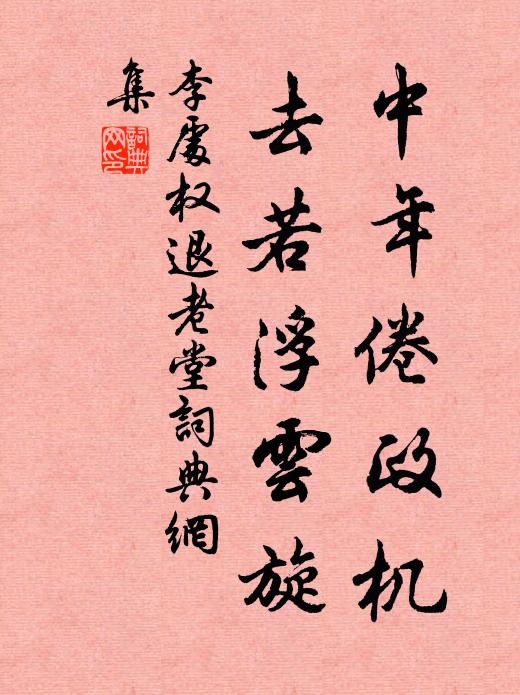 中年倦政机
去若浮雲旋
李處权退老堂詞典網
集
詞典網印